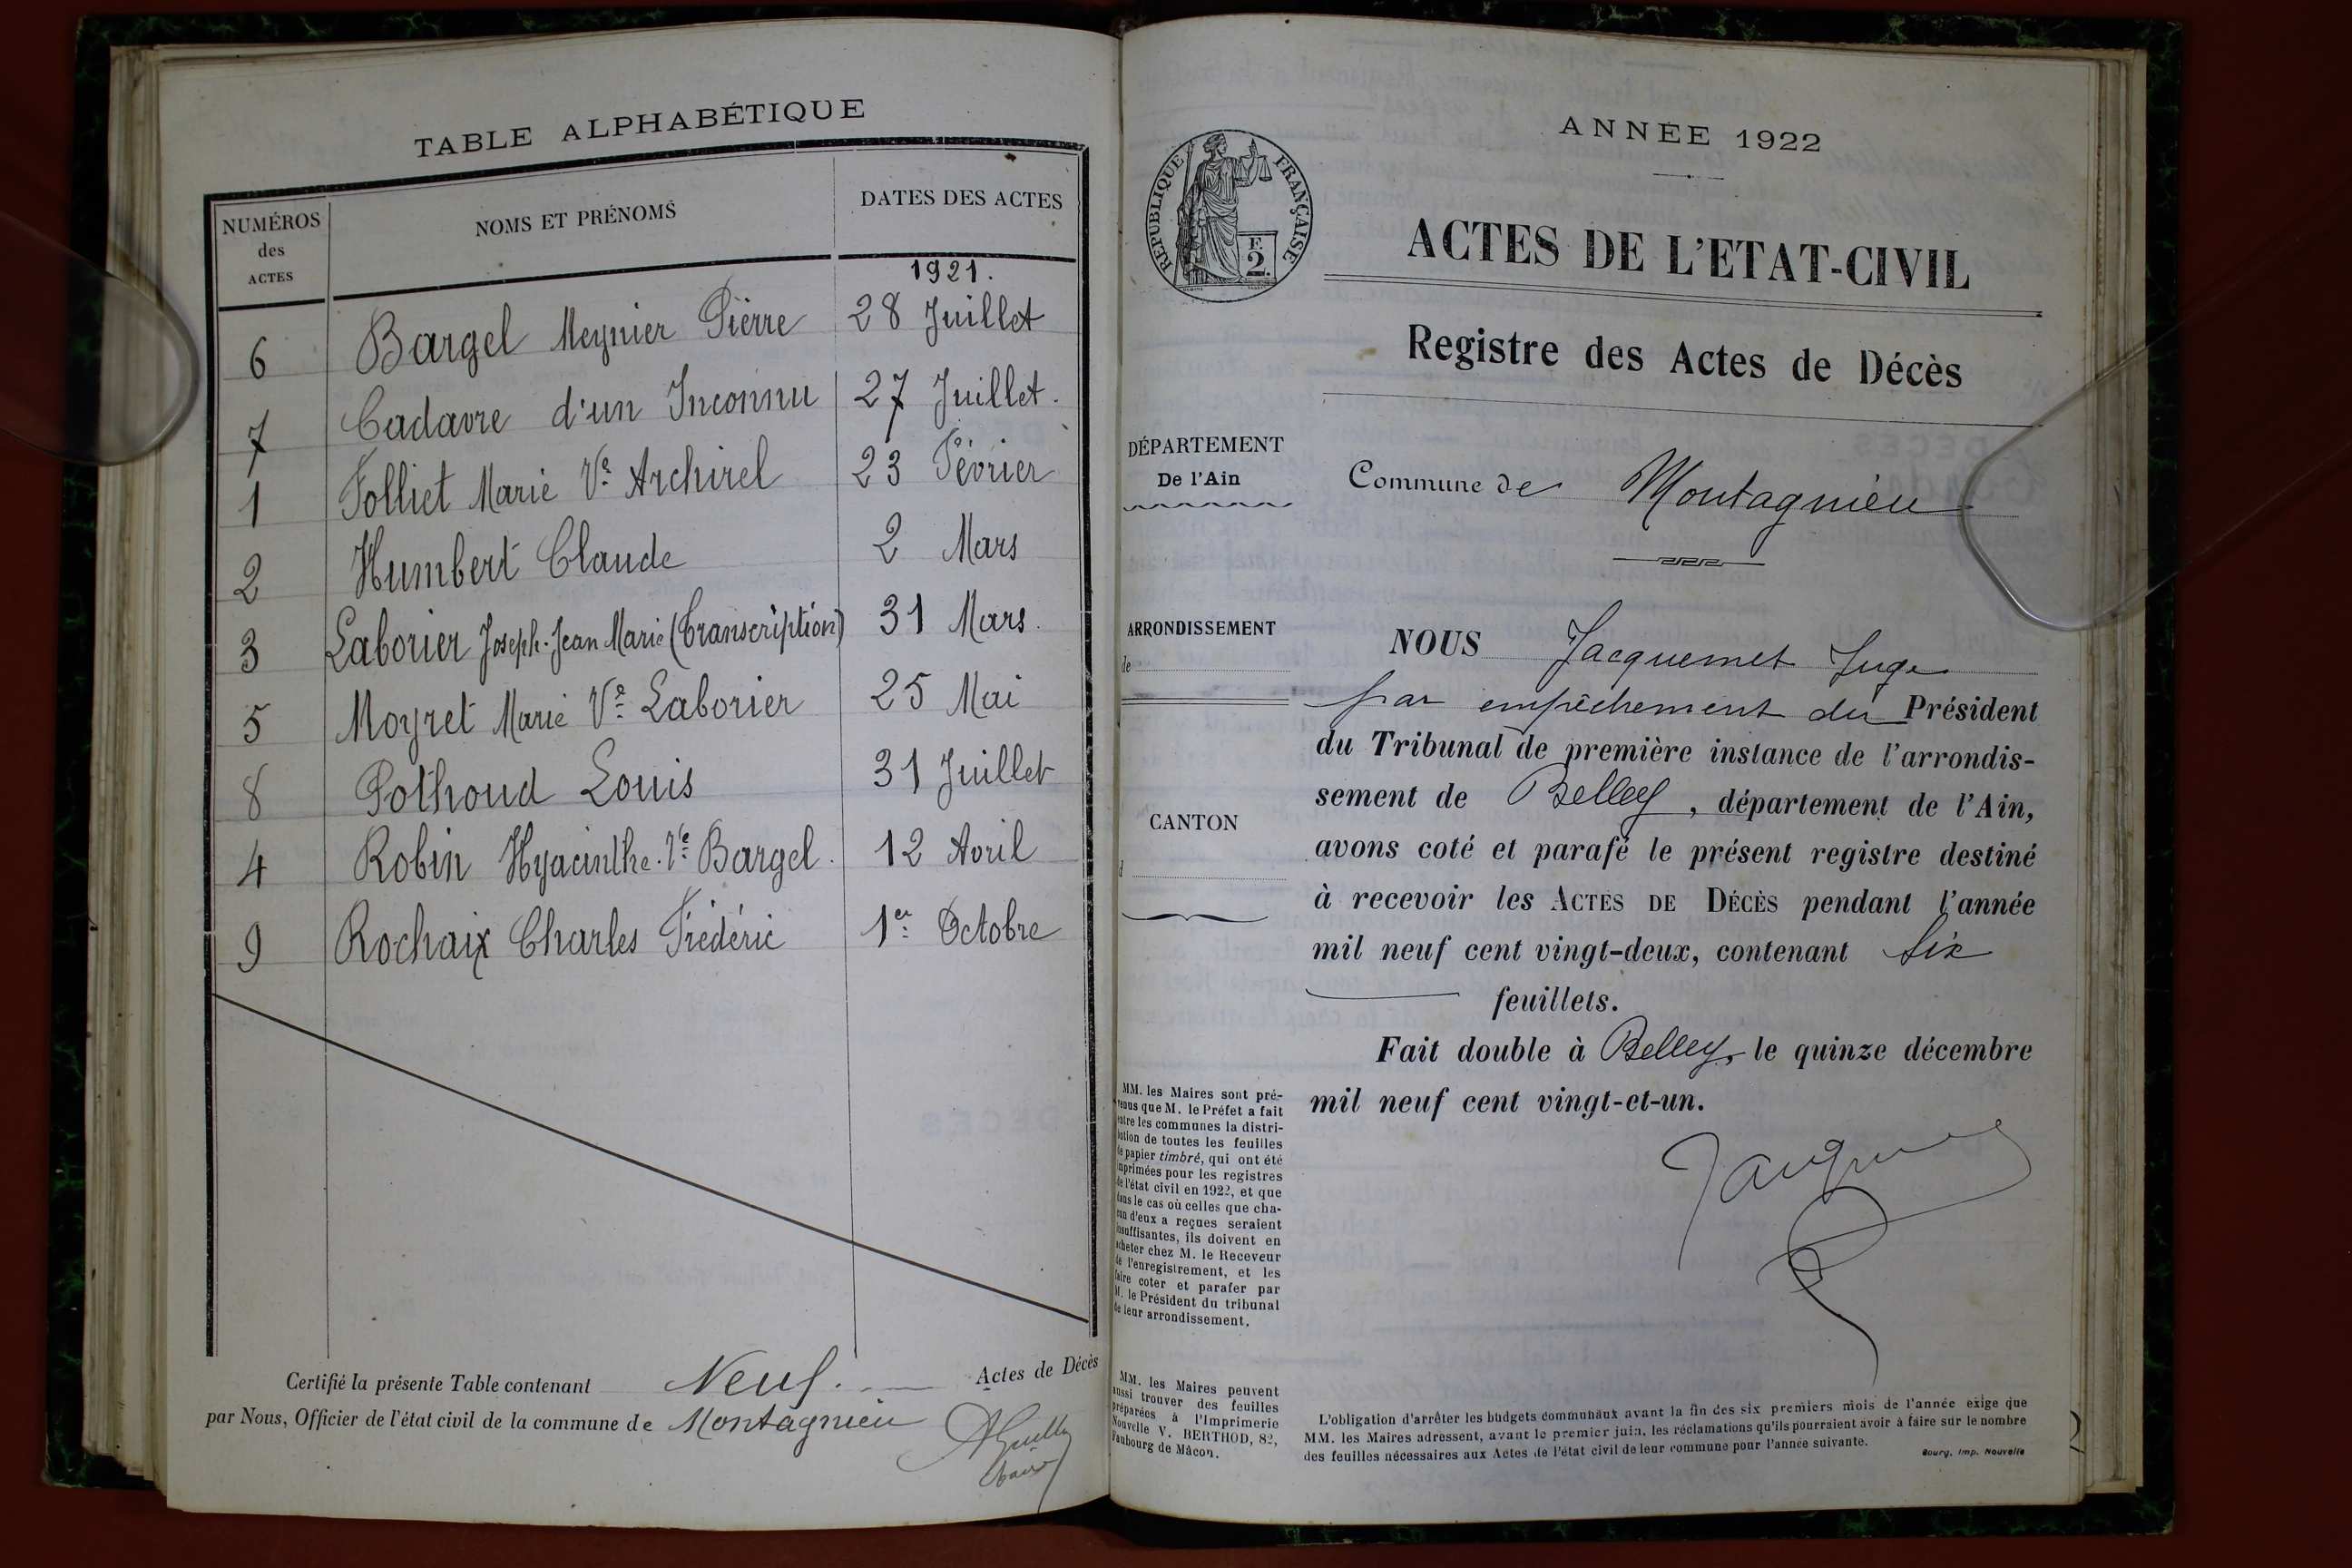 TABLE ALPHABÉTIQUE
NUMÉROS des ACTES
NOMS ET PRÉNOMS
DATES DES ACTES
1921.
6 Bargel Meynier Pierre 28 Juillet
7 Cadavre d'un Inconnu 27 Juillet.
1 Folliet Marie Ve Archirel 23 Février
2 Humbert Claude 2 Mars
3 Laborier Joseph-Jean Marie (Transcription) 31 Mars.
5 Moyret Marie Ve Laborier 25 Mai
8 Pothoud Louis 31 Juillet
4 Robin Hyacinthe. Ve Bargel. 12 Avril
9 Rochaix Charles Frédéric 1er Octobre
Certifié la présente Table contenant Neuf. Actes de Décès
par Nous, Officier de l'état civil de la commune de Montagnieu
ANNÉE 1922
RÉPUBLIQUE FRANÇAISE
F.
2.
ACTES DE L'ETAT-CIVIL
Registre des Actes de Décès
DÉPARTEMENT
De l'Ain
Commune de Montagnieu
ARRONDISSEMENT
de
CANTON
d
NOUS Jacquemet Juge
par empêchement du Président
du Tribunal de première instance de l'arrondis-
sement de Belley, département de l'Ain,
avons coté et parafé le présent registre destiné
à recevoir les ACTES DE DÉCÈS pendant l'année
mil neuf cent vingt-deux, contenant six
feuillets.
Fait double à Belley, le quinze décembre
mil neuf cent vingt-et-un.
MM. les Maires sont pré-
venus que M. le Préfet a fait
entre les communes la distri-
bution de toutes les feuilles
de papier timbré, qui ont été
imprimées pour les registres
de l'état civil en 1922, et que
dans le cas où celles que cha-
cun d'eux a reçues seraient
insuffisantes, ils doivent en
acheter chez M. le Receveur
de l'enregistrement, et les
faire coter et parafer par
M. le Président du tribunal
de leur arrondissement.
MM. les Maires peuvent
aussi trouver des feuilles
préparées à l'Imprimerie
Nouvelle V. BERTHOD, 82,
Faubourg de Mâcon.
L'obligation d'arrêter les budgets communaux avant la fin des six premiers mois de l'année exige que
MM. les Maires adressent, avant le premier juin, les réclamations qu'ils pourraient avoir à faire sur le nombre
des feuilles nécessaires aux Actes de l'état civil de leur commune pour l'année suivante.
Bourg, Imp. Nouvelle